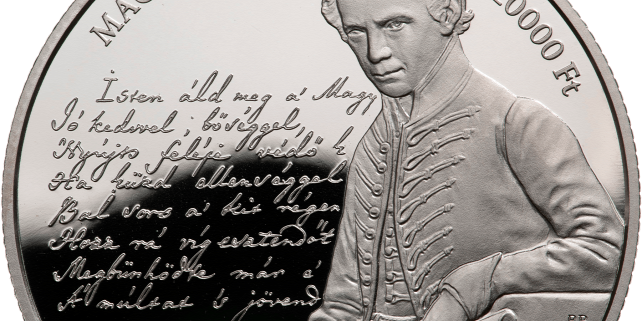 MAG
20000 Ft
Isten áld meg a' Magy
Jó kedvvel, bőséggel,
Nyújts feléje védő k
Ha küzd ellenséggel
Bal sors a' kit régen
Hozz rá víg esztendőt
Megbűnhödte már e'
A' múltat 's jövend